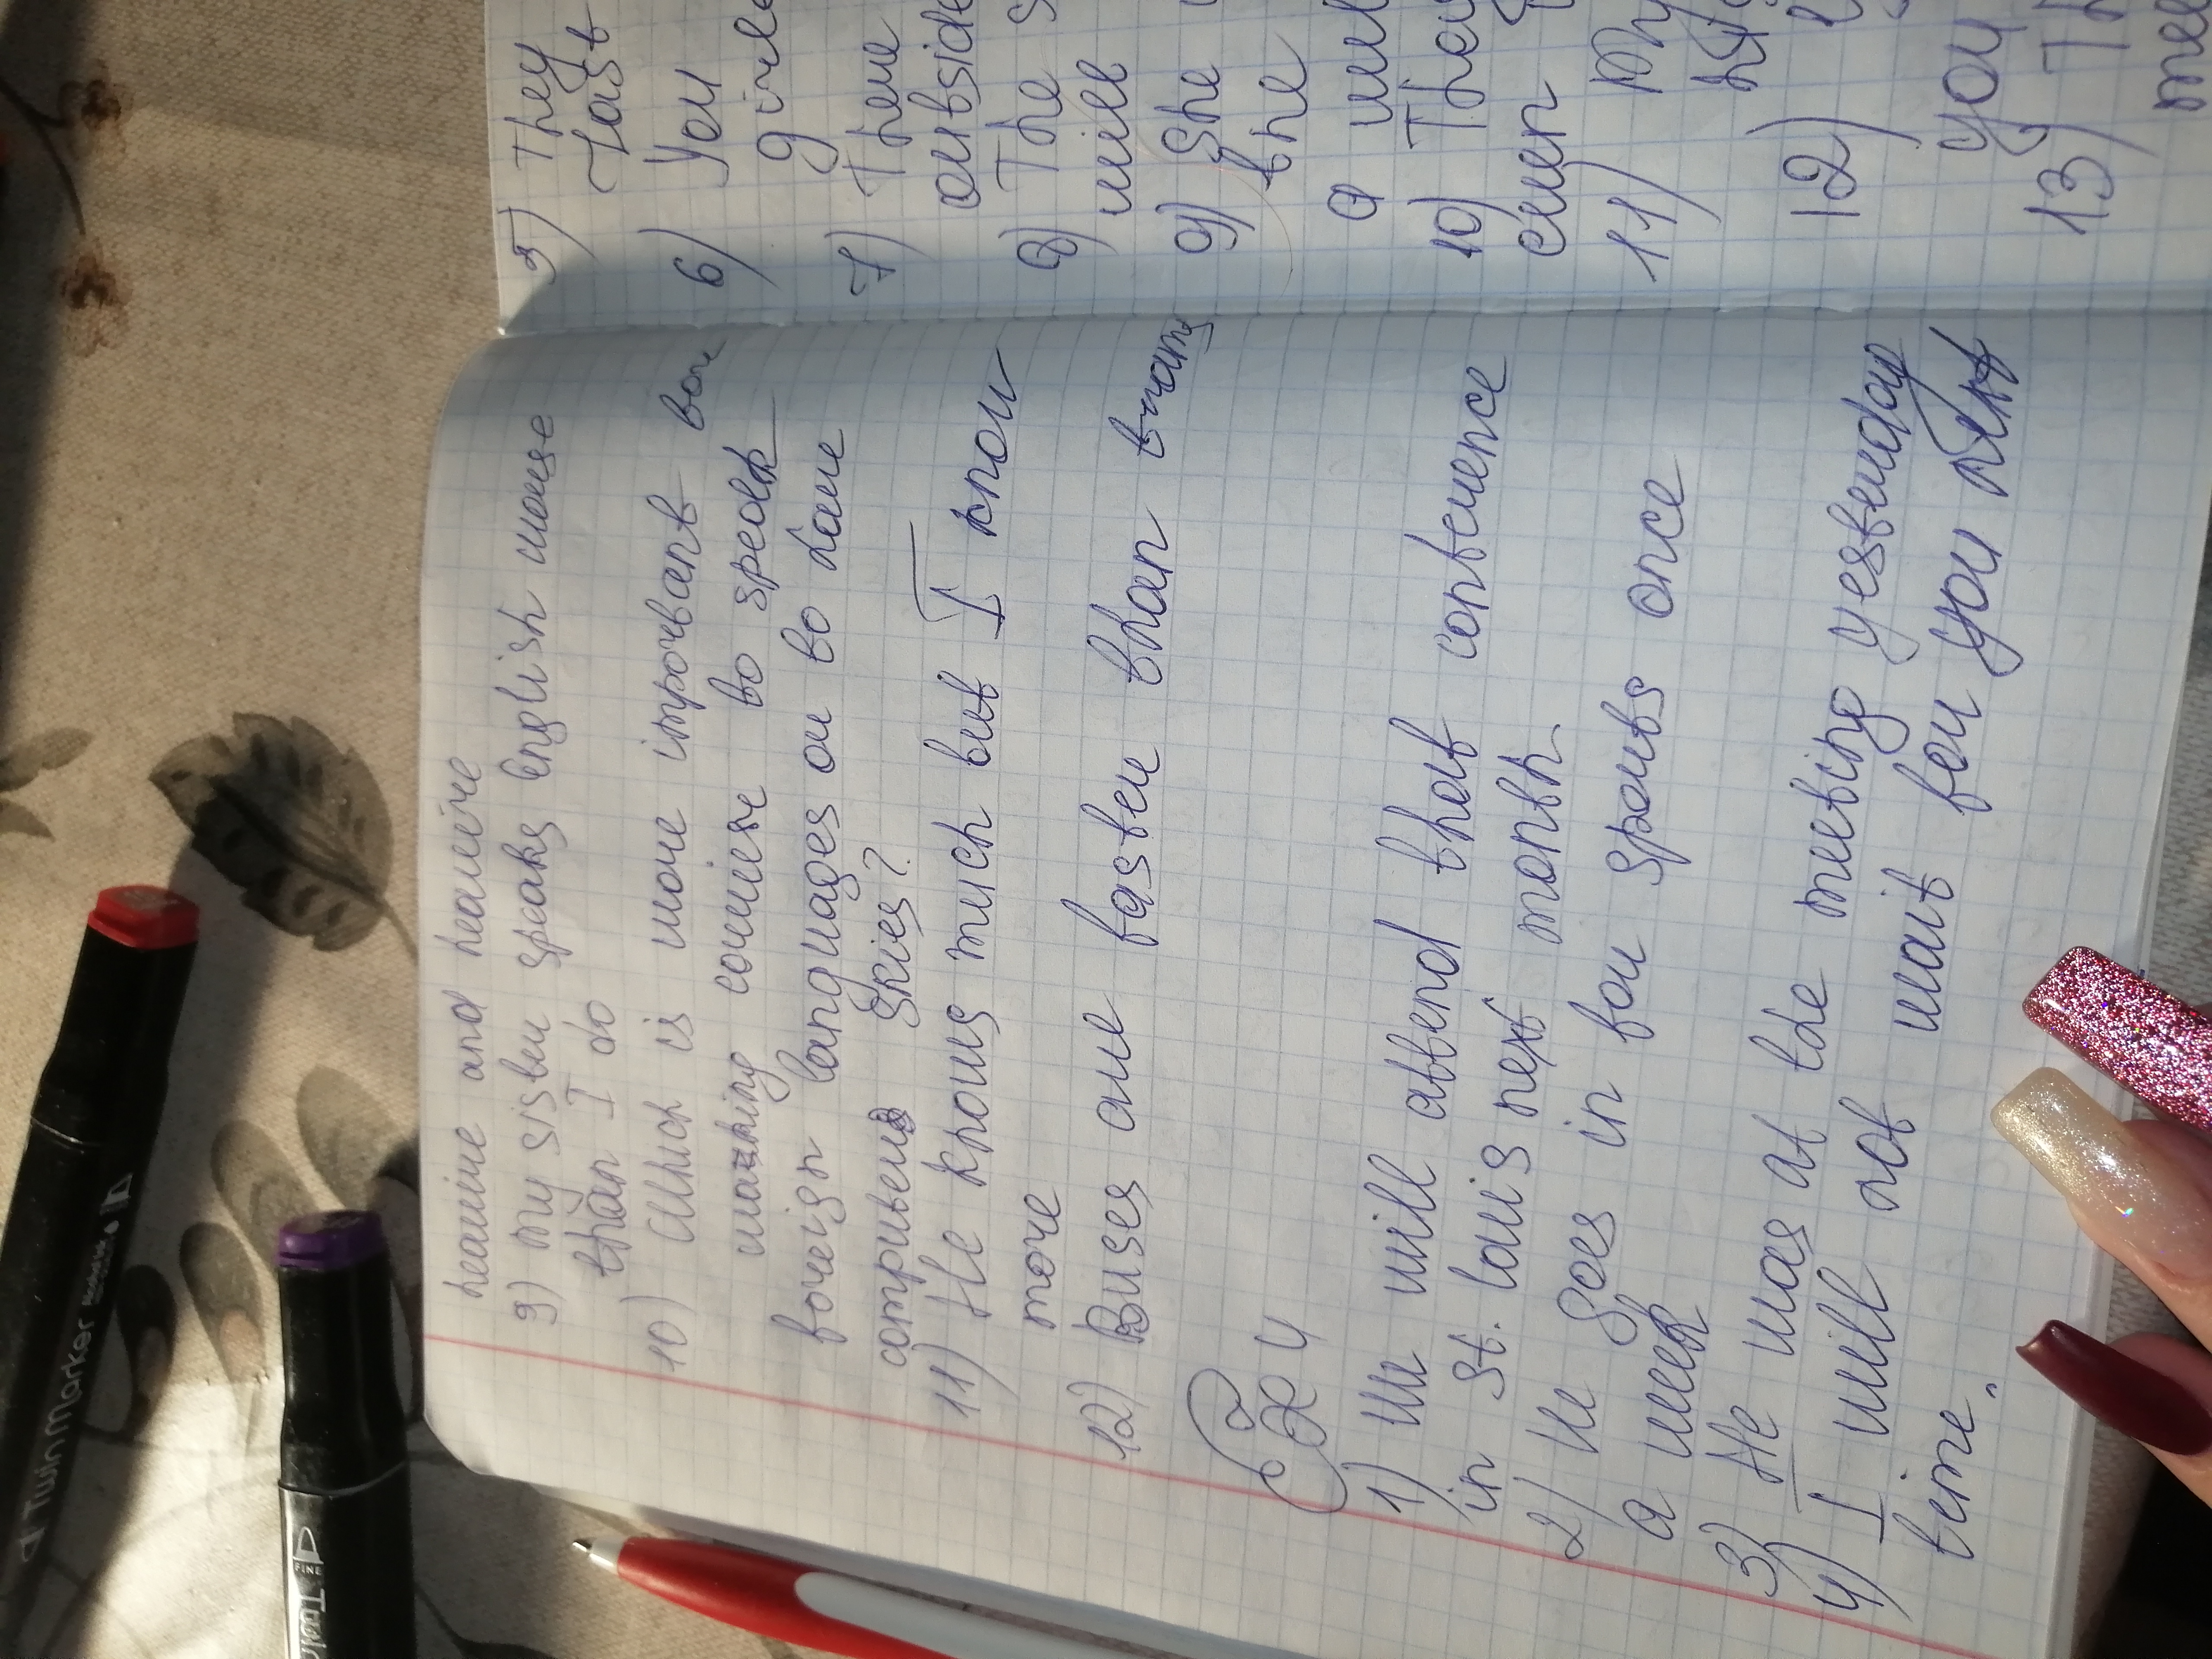 heavire and heavire
9) my sister speaks English worse
than I do
10) Which is more importent for
working couriere to speak
foreign languages or to have
computers skies?
11) He knows much but I know
more
12) Buses are faster than trams
Ex 4
1) We will attend that conference
in St. Louis next month
2) He goes in for sports once
a week
3) He was at the meeting yesterday
4) I will not wait for you next
time.
5) They
last
6) You
give
7) There
outside
8) The s
will
9) She
the
a
10) They
even
11) My
12)
you
13) Th
TwinMarker
FINE